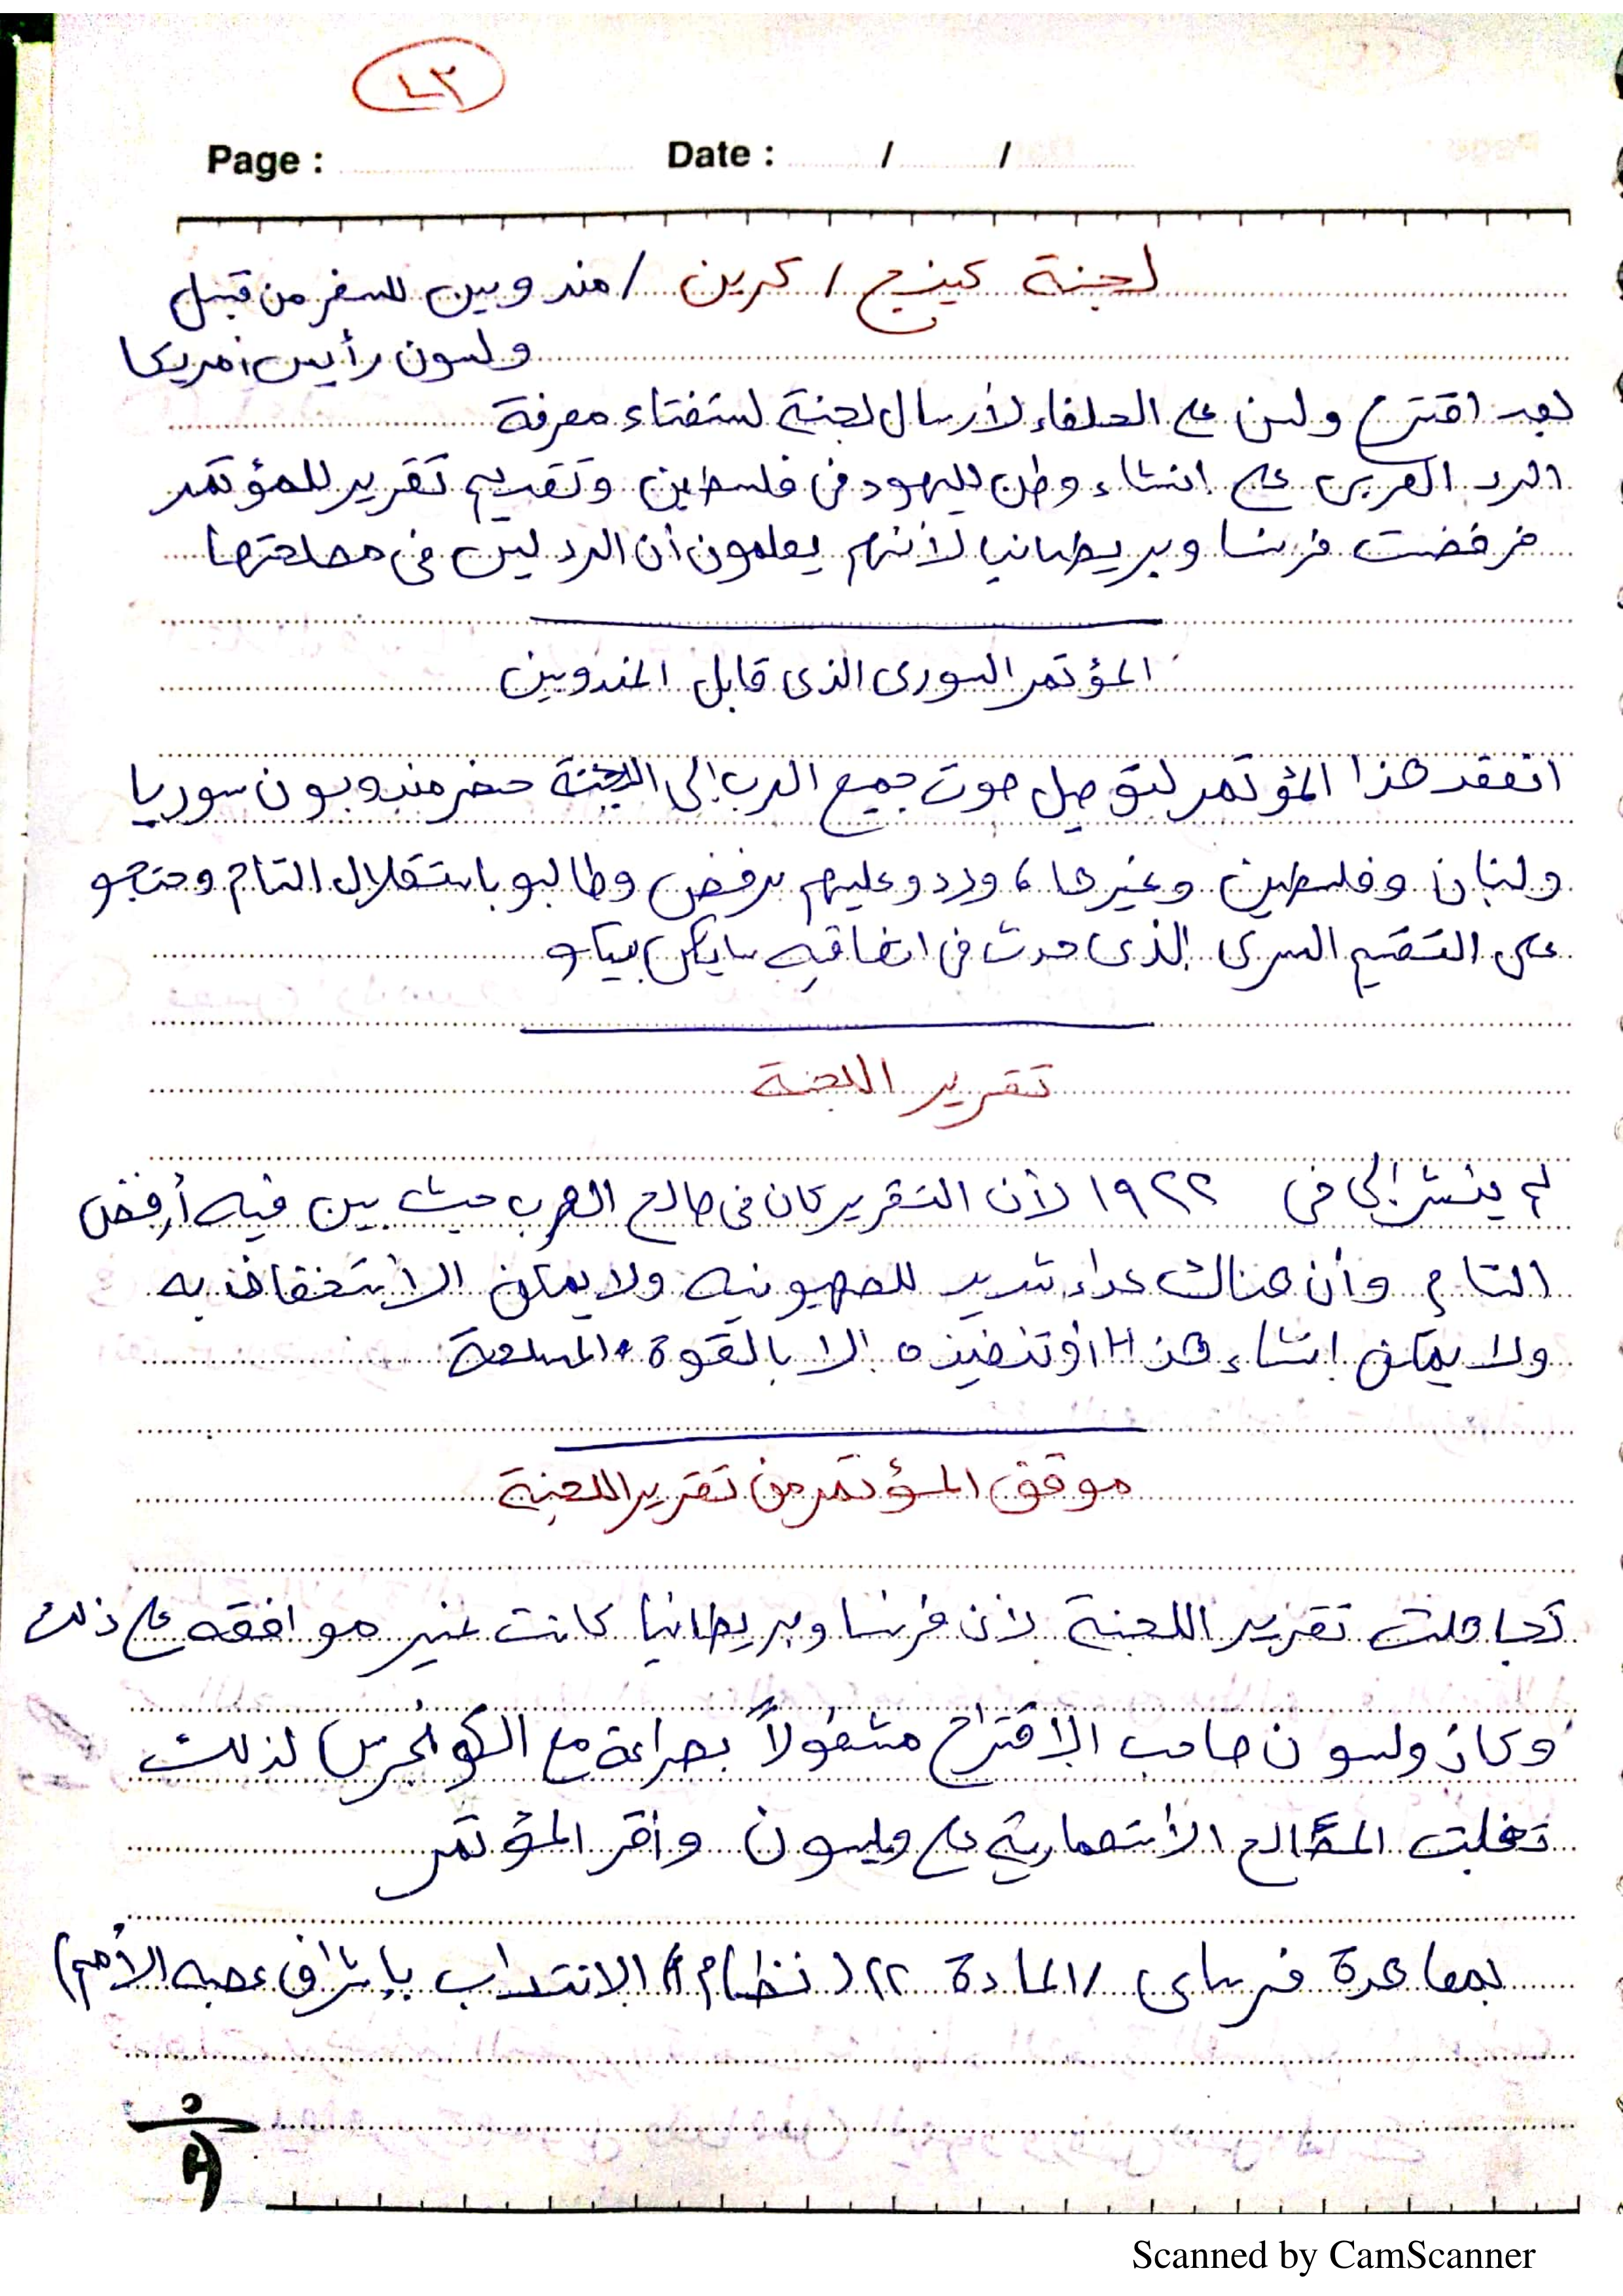 ٤٣
Page :
Date :        /        /
لجنة كينج / كرين / مندوبين للسفر من قبل
ولسون رأيس امريكا
بعد اقتراح ولسن على الحلفاء لأرسال لجنة لستفتاء معرفة
الرد العربى على انشاء وطن لليهود فى فلسطين وتقديم تقرير للمؤتمر
فرفضت فرنسا وبريطانيا لأنهم يعلمون أن الرد ليس فى مصلحتها
المؤتمر السورى الذى قابل المندوبين
انعقد هذا المؤتمر لتوصيل صوت جميع العرب إلى اللجنة حضر مندوبون سوريا
ولبنان وفلسطين وغيرها ، وردو عليهم برفض وطالبو باستقلال التام وحتجو
على التقسيم السرى الذى حدث فى اتفاقيه سايكس بيكو
تقرير اللجنة
لم ينشر إلى فى ١٩٢٢ لأن التقرير كان فى صالح العرب حيث بين فيه أرفض
التام وأن هناك عداء شديد للصهيونيه ولا يمكن الأستخفاف به
ولا يمكن إنشاء هذا أو تنفيذه إلا بالقوة المسلحة
موقف المؤتمر من تقرير اللجنة
تجاهلت تقرير اللجنة لأن فرنسا وبريطانيا كانت غير موافقه على ذلك
وكان ولسون صاحب الاقتراح مشغولاً بصراعة مع الكونجرس لذلك
تغلبت المصالح الأستعمارية على ويلسون وأقر المؤتمر
بمعاهدة فرساى / المادة ٢٢ ( نظام الانتداب بإشراف عصبه الأمم )
Scanned by CamScanner